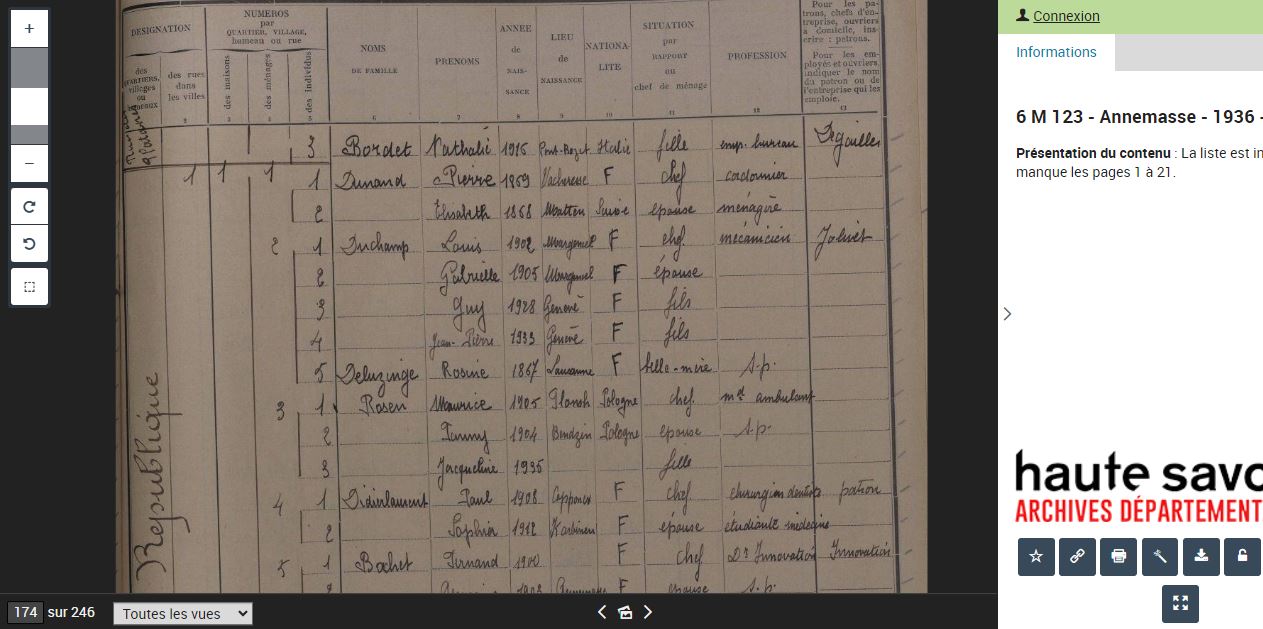 Connexion
Informations
6 M 123 - Annemasse - 1936 -
Présentation du contenu : La liste est in
manque les pages 1 à 21.
haute savo
ARCHIVES DÉPARTEMENT
DESIGNATION
des QUARTIERS, villages ou hameaux
des rues dans les villes
NUMEROS par QUARTIER, VILLAGE, hameau ou rue
des maisons
des ménages
des individus
NOMS DE FAMILLE
PRENOMS
ANNEE de NAISSANCE
LIEU de NAISSANCE
NATIONALITE
SITUATION par RAPPORT au chef de ménage
PROFESSION
Pour les patrons, chefs d'entreprise, ouvriers à domicile, inscrire : patrons.
Pour les employés et ouvriers, indiquer le nom du patron ou de l'entreprise qui les emploie.
2 3 4 5 6 7 8 9 10 11 12 13
3 Bordet Nathalie 1915 Italie fille emp. bureau
1 1 1 1 Dunand Pierre 1869 Vacheresse F chef cordonnier
2 Elisabeth 1868 Suisse épouse ménagère
2 1 Duchamp Louis 1902 F chef mécanicien Jolivet
2 Gabrielle 1905 F épouse
3 Guy 1928 Genève F fils
4 Jean-Pierre 1933 Genève F fils
5 Deluzinge Rosine 1867 Lausanne F belle-mère s.p.
3 1 Rosen Maurice 1905 Plonsk Pologne chef md ambulant
2 Fanny 1904 Bendzin Pologne épouse s.p.
3 Jacqueline 1935 fille
4 1 Didierlaurent Paul 1908 F chef chirurgien dentiste patron
2 Sophia 1912 F épouse étudiante médecine
5 1 Bochet Fernand 1900 F chef Dr Innovation Innovation
2 F épouse s.p.
République
174 sur 246
Toutes les vues